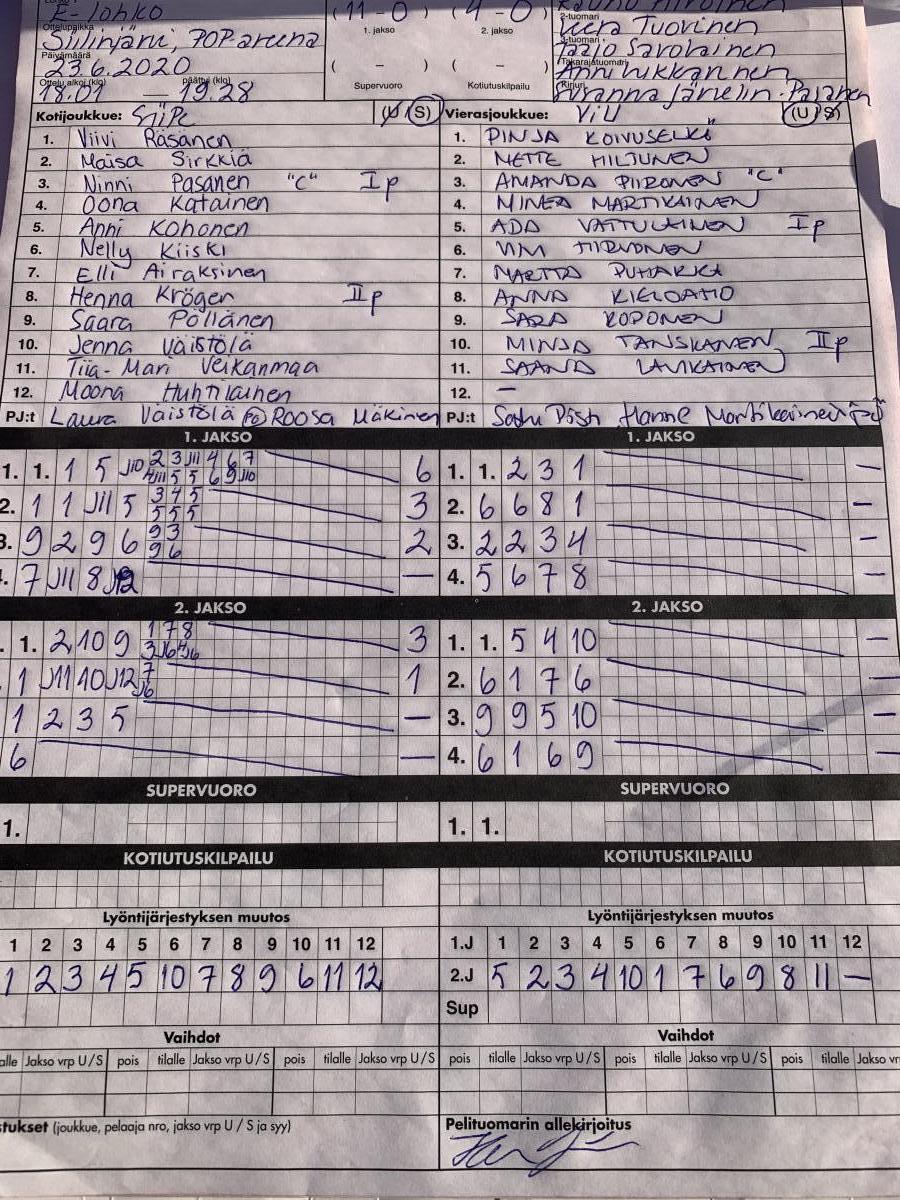 E-lohko
(11-0) (4-0)
Ottelupaikka
1. jakso 2. jakso
2-tuomari
Veera Tuovinen
Siilinjärvi, POP areena
3-tuomari
Savolainen
Päivämäärä
23.6.2020
( - ) ( - )
Takarajatuomari
Ottelu alkoi (klo) päättyi (klo)
18.01 — 19.28
Supervuoro Kotiutuskilpailu
Kirjuri
Kotijoukkue: SiiPe (U/S)
Vierasjoukkue: ViU (U/S)
1. Viivi Räsänen
2. Maisa Sirkkiä
3. Ninni Pasanen "C" Ip
4. Oona Katainen
5. Anni Kohonen
6. Nelly Kiiski
7. Elli Airaksinen
8. Henna Kröger IIp
9. Saara Pöllänen
10. Jenna Väistölä
11. Tiia-Mari Veikanmaa
12. Moona Huhtilainen
PJ:t Laura Väistölä ROOSA MÄKINEN
1. PINJA KOIVUSELKÄ
2. METTE MILTUNEN
3. AMANDA PIIRONEN "C"
4. MINEA MARTIKAINEN
5. ADA VATTULAINEN Ip
6. HIRVONEN
7. MARTTA PUHAKKA
8. ANNA KIELOAHO
9. SARA KOPONEN
10. MINJA TANSKANEN IIp
11. LAVIKAINEN
12. —
PJ:t Hanne Martikainen
1. JAKSO
1. 1. 1 5 J10 2 3 J11 4 6 7 6
5 5 6 9 J10
2. 1 1 J11 5 3 4 5 3
5 5 5
3. 9 2 9 6 9 3 2
9 6
7 J11 8 J12 —
1. JAKSO
1. 1. 2 3 1 —
2. 6 6 8 1 —
3. 2 2 3 4 —
4. 5 6 7 8 —
2. JAKSO
1. 2 10 9 1 7 8 3
3 J6
1 J11 10 J12 7 1
J6
1 2 3 5 —
6 —
2. JAKSO
1. 1. 5 4 10 —
2. 6 1 7 6 —
3. 9 9 5 10 —
4. 6 1 6 9 —
SUPERVUORO
1.
SUPERVUORO
1. 1.
KOTIUTUSKILPAILU
KOTIUTUSKILPAILU
Lyöntijärjestyksen muutos
1 2 3 4 5 6 7 8 9 10 11 12
1 2 3 4 5 10 7 8 9 6 11 12
Lyöntijärjestyksen muutos
1.J 1 2 3 4 5 6 7 8 9 10 11 12
2.J 5 2 3 4 10 1 7 6 9 8 11 —
Sup
Vaihdot
alle Jakso vrp U/S pois tilalle Jakso vrp U/S pois tilalle Jakso vrp U/S
Vaihdot
pois tilalle Jakso vrp U/S pois tilalle Jakso vrp U/S pois tilalle Jakso vr
tukset (joukkue, pelaaja nro, jakso vrp U / S ja syy)
Pelituomarin allekirjoitus